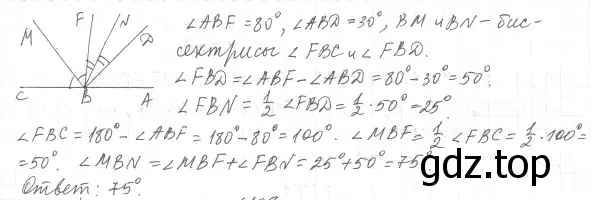 M F N D
C B A
∠ABF = 80°, ∠ABD = 30°, BM и BN - бис-
сектрисы ∠FBC и ∠FBD.
∠FBD = ∠ABF - ∠ABD = 80° - 30° = 50°.
∠FBN = 1/2 ∠FBD = 1/2 · 50° = 25°.
∠FBC = 180° - ∠ABF = 180° - 80° = 100°. ∠MBF = 1/2 ∠FBC = 1/2 · 100° =
= 50°. ∠MBN = ∠MBF + ∠FBN = 25° + 50° = 75°
Ответ: 75°.
gdz.top